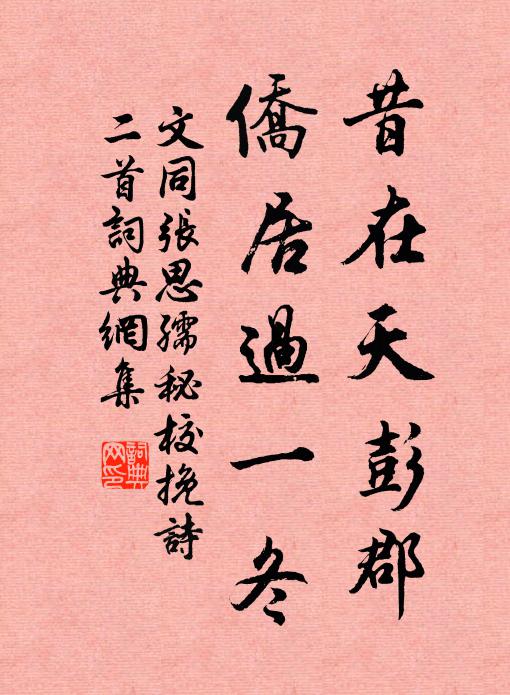 昔在天彭郡
僑居過一冬
文同張思孺秘校挽詩
二首詞典網集
詞典網印